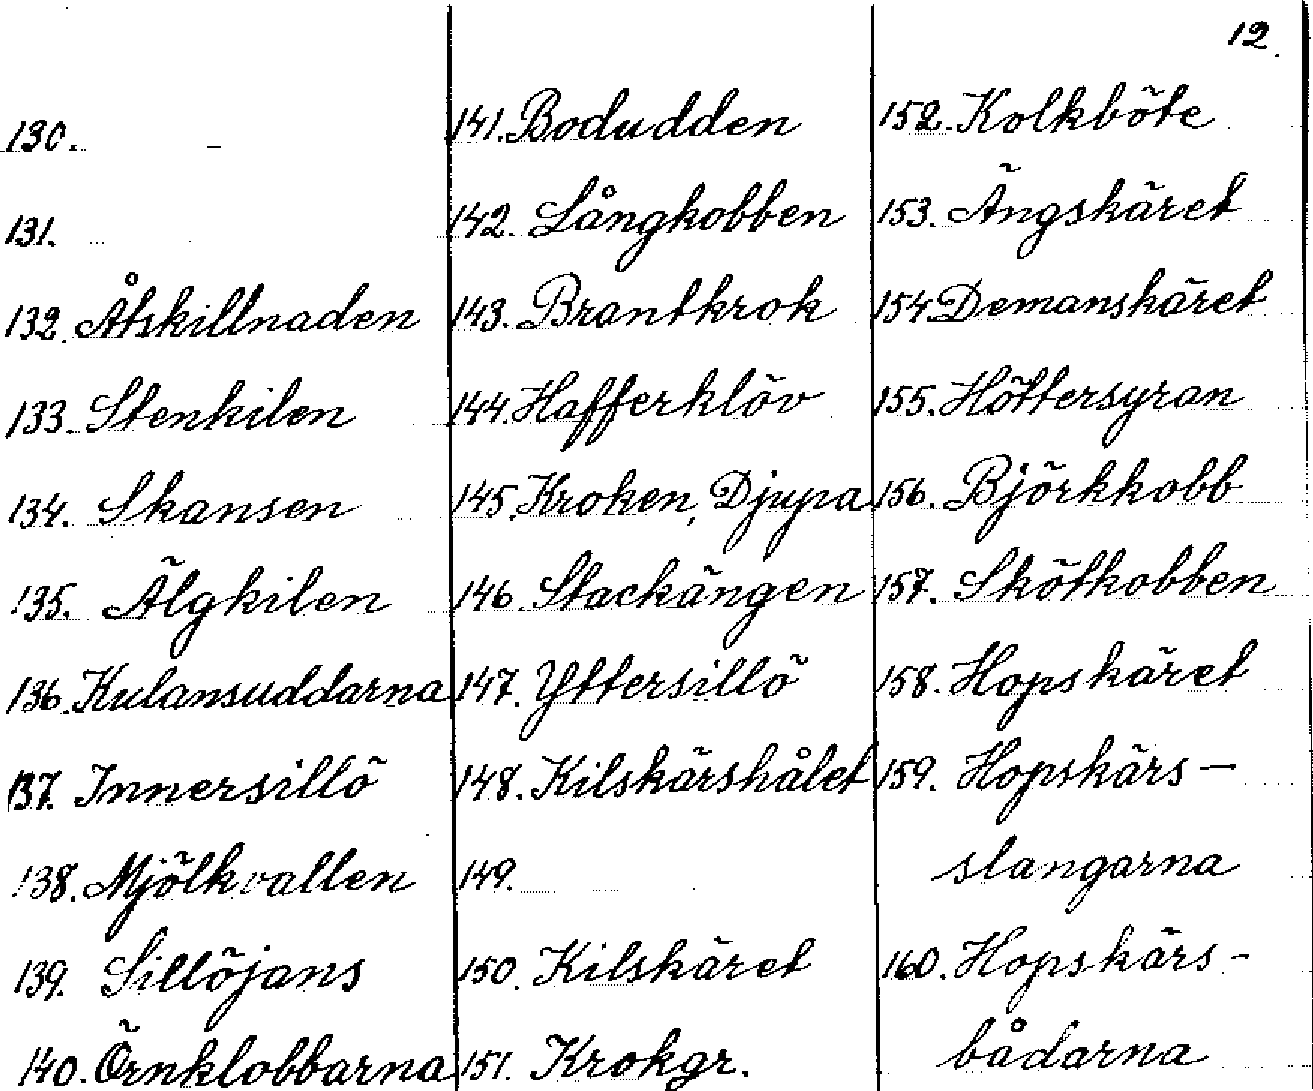 12.
130. –
131.
132. Åtskillnaden
133. Stenkilen
134. Skansen
135. Älgkilen
136. Kulansuddarna
137. Innersillö
138. Mjölkvallen
139. Sillöjans
140. Örnklobbarna
141. Bodudden
142. Långkobben
143. Brantkrok
144. Hafferklöv
145. Kroken, Djupa
146. Stackängen
147. Yttersillö
148. Kilskärshålet
149.
150. Kilskäret
151. Krokgr.
152. Kolkböte
153. Ängskäret
154. Demanskäret
155. Höttersyran
156. Björkkobb
157. Skötkobben
158. Hopskäret
159. Hopskärs-
slangarna
160. Hopskärs-
bådarna